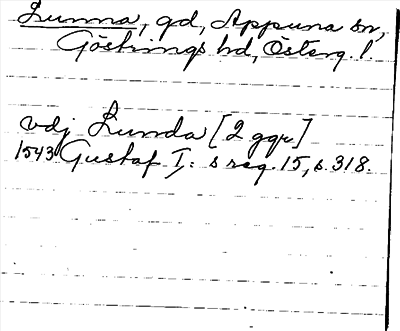 Lunna, gd, Appuna sn,
Göstrings hd, Österg. l.
vdj Lunda [2 ggr]
1543 Gustaf I:s reg. 15, s. 318.